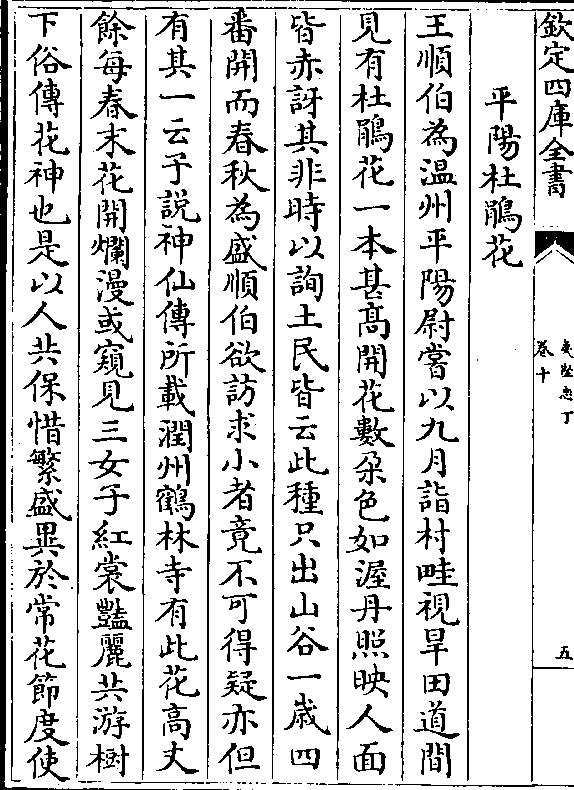 欽定四庫全書
夷堅志丁
卷十
五
平陽杜鵑花
王順伯為温州平陽尉嘗以九月詣村畦視旱田道間
見有杜鵑花一本甚高開花數朶色如渥丹照映人面
皆亦訝其非時以詢土民皆云此種只出山谷一歳四
番開而春秋為盛順伯欲訪求小者竟不可得疑亦但
有其一云予說神仙傳所載潤州鶴林寺有此花高丈
餘每春末花開爛漫或窺見三女子紅裳豔麗共游樹
下俗傳花神也是以人共保惜繁盛異於常花節度使